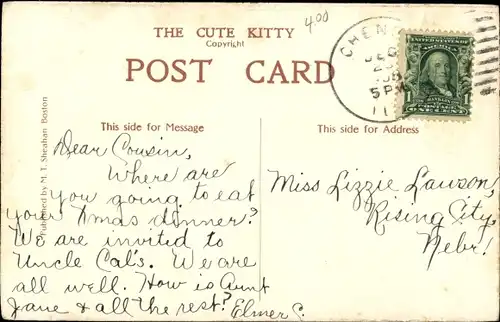 THE CUTE KITTY
Copyright
4.00
POST CARD
This side for Message
This side for Address
Published by M. T. Sheahan Boston
5 PM
UNITED STATES OF
AMERICA
FRANKLIN
Dear Cousin,
Where are
you going to eat
your Xmas dinner?
We are invited to
Uncle Cal's. We are
all well. How is Aunt
Jane & all the rest?
Elmer C.
Miss Lizzie Lawson,
Rising City,
Nebr!